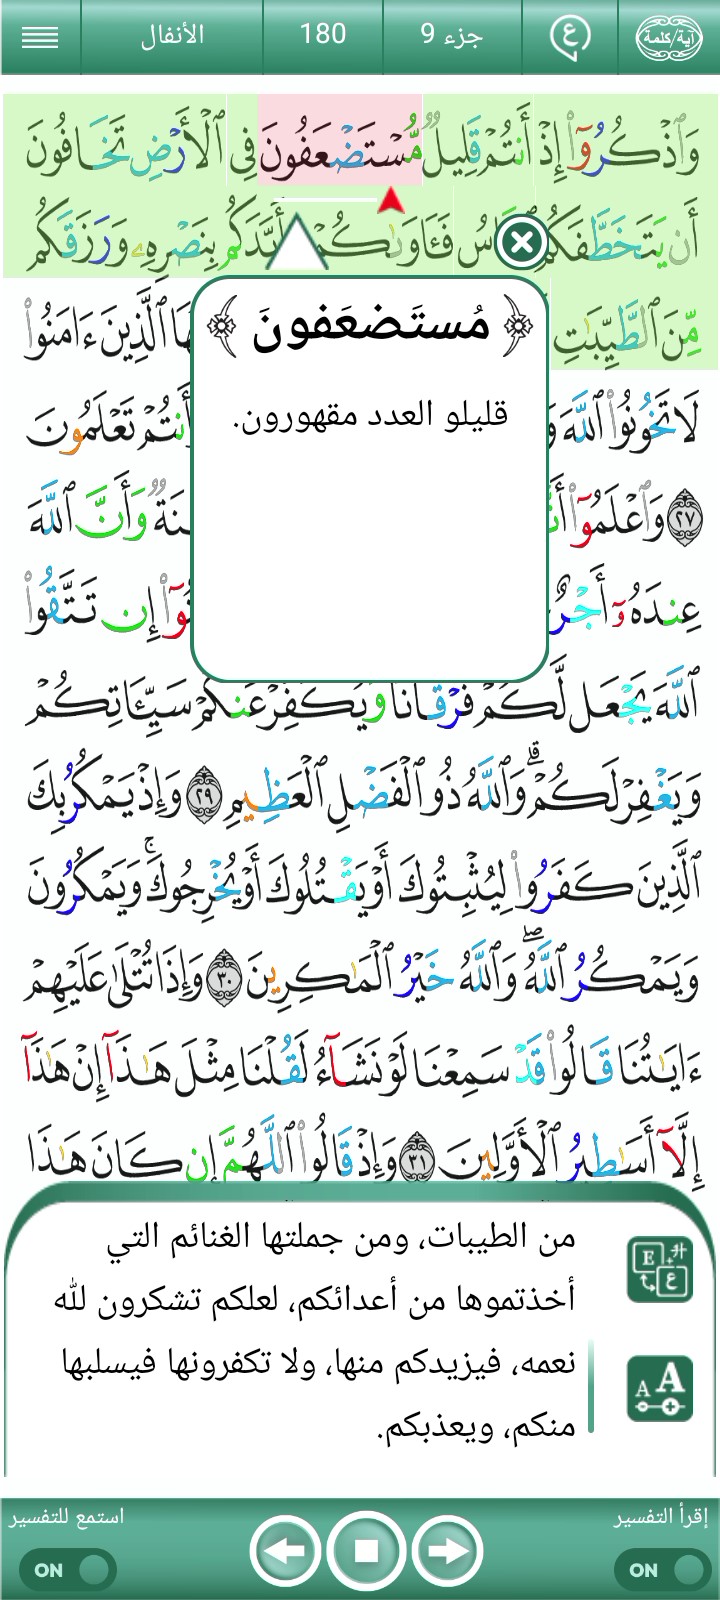 آية/كلمة
ع
جزء 9
180
الأنفال
وَٱذْكُرُوٓا۟ إِذْ أَنتُمْ قَلِيلٌ مُّسْتَضْعَفُونَ فِى ٱلْأَرْضِ تَخَافُونَ
أَن يَتَخَطَّفَكُمُ ٱلنَّاسُ فَـَٔاوَىٰكُمْ وَأَيَّدَكُم بِنَصْرِهِۦ وَرَزَقَكُم
مِّنَ ٱلطَّيِّبَٰتِ
ٱلَّذِينَ ءَامَنُوا۟
﴿مُستَضعَفونَ﴾
قليلو العدد مقهورون.
لَا تَخُونُوا۟ ٱللَّهَ
أَنتُمْ تَعْلَمُونَ
٢٧ وَٱعْلَمُوٓا۟
وَأَنَّ ٱللَّهَ
عِندَهُۥٓ أَجْرٌ
إِن تَتَّقُوا۟
ٱللَّهَ يَجْعَل لَّكُمْ فُرْقَانًا وَيُكَفِّرْ عَنكُمْ سَيِّـَٔاتِكُمْ
وَيَغْفِرْ لَكُمْ ۗ وَٱللَّهُ ذُو ٱلْفَضْلِ ٱلْعَظِيمِ ٢٩ وَإِذْ يَمْكُرُ بِكَ
ٱلَّذِينَ كَفَرُوا۟ لِيُثْبِتُوكَ أَوْ يَقْتُلُوكَ أَوْ يُخْرِجُوكَ ۚ وَيَمْكُرُونَ
وَيَمْكُرُ ٱللَّهُ ۖ وَٱللَّهُ خَيْرُ ٱلْمَٰكِرِينَ ٣٠ وَإِذَا تُتْلَىٰ عَلَيْهِمْ
ءَايَٰتُنَا قَالُوا۟ قَدْ سَمِعْنَا لَوْ نَشَآءُ لَقُلْنَا مِثْلَ هَٰذَآ إِنْ هَٰذَآ
إِلَّآ أَسَٰطِيرُ ٱلْأَوَّلِينَ ٣١ وَإِذْ قَالُوا۟ ٱللَّهُمَّ إِن كَانَ هَٰذَا
من الطيبات، ومن جملتها الغنائم التي
أخذتموها من أعدائكم، لعلكم تشكرون لله
نعمه، فيزيدكم منها، ولا تكفرونها فيسلبها
منكم، ويعذبكم.
إقرأ التفسير
استمع للتفسير
ON
ON